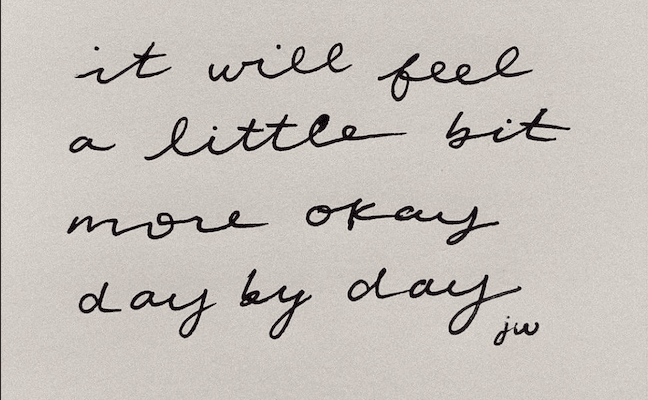 it will feel
a little bit
more okay
day by day
jw